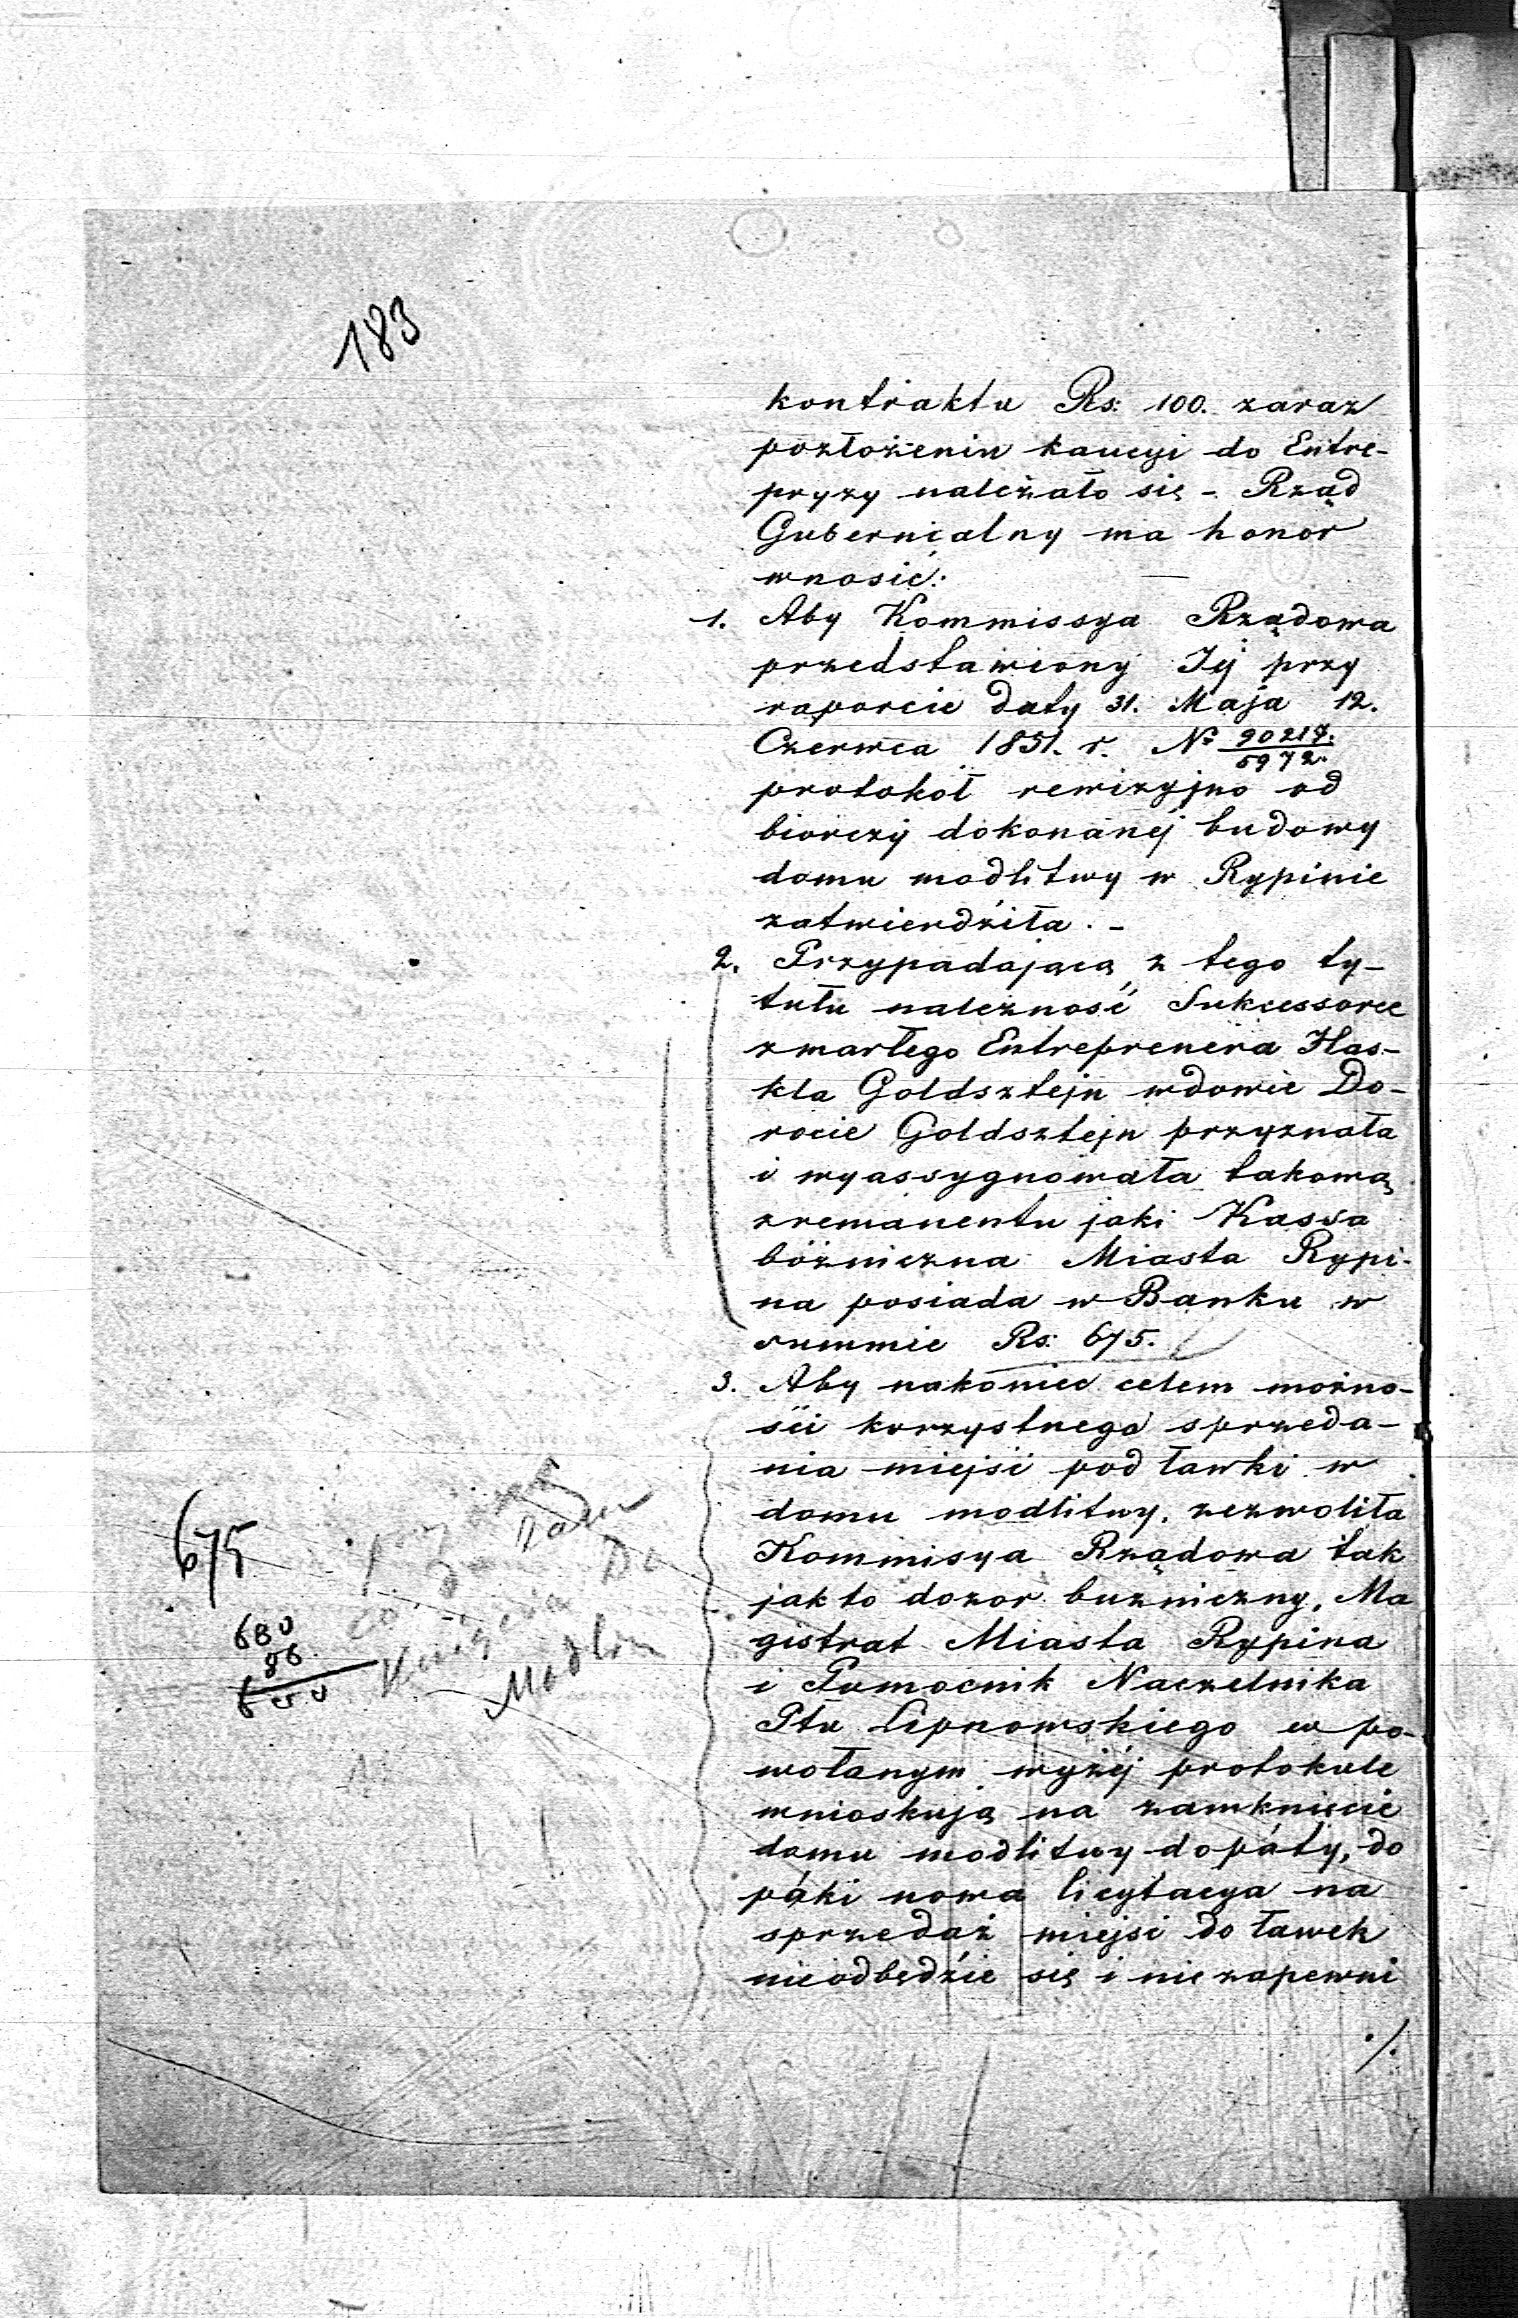 183
kontraktu Rs: 100. zaraz
pozłożeniu kaucyi do Entre-
pryzy należało się - Rząd
Gubernialny ma honor
wnosić:
1. Aby Kommissya Rządowa
przedstawiony Jej przy
raporcie daty 31. Maja 12.
Czerwca 1851. r. Nr 90217./5972.
protokoł rewizyjno od
biorczy dokonanej budowy
domu modlitwy w Rypinie
zatwierdziła. -
2. Przypadającą z tego ty-
tułu należność Sukcessorce
zmarłego Entreprenera Has-
kla Goldsztejn wdowie Do-
rocie Goldsztejn przyznała
i wyassygnowała takową
zremanentu jaki Kassa
bóżniczna Miasta Rypi-
na posiada w Banku w
summie Rs: 675.
3. Aby nakoniec celem możno-
ści korzystnego sprzeda-
nia miejsc pod ławki w
domu modlitwy, zezwoliła
Kommisya Rządowa tak
jak to dozor bużniczny, Ma
gistrat Miasta Rypina
i Pomocnik Naczelnika
Ptu Lipnowskiego w po-
wołanym wyżej protokule
wnioskują na zamknięcie
domu modlitwy dopóty, do
póki nowa licytacya na
sprzedaż miejsc do ławek
nieodbędzie się i nie zapewni
./.
675
680
86